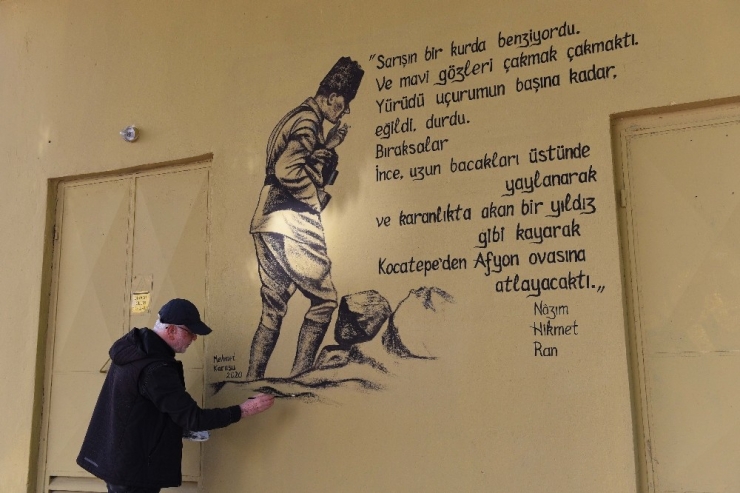 "Sarışın bir kurda benziyordu.
Ve mavi gözleri çakmak çakmaktı.
Yürüdü uçurumun başına kadar,
eğildi, durdu.
Bıraksalar
İnce, uzun bacakları üstünde
yaylanarak
ve karanlıkta akan bir yıldız
gibi kayarak
Kocatepe'den Afyon ovasına
atlayacaktı.„
Nâzım
Hikmet
Ran
Mehmet
Karasu
2020